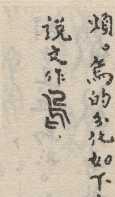 烦。焉的分化如下
说文作